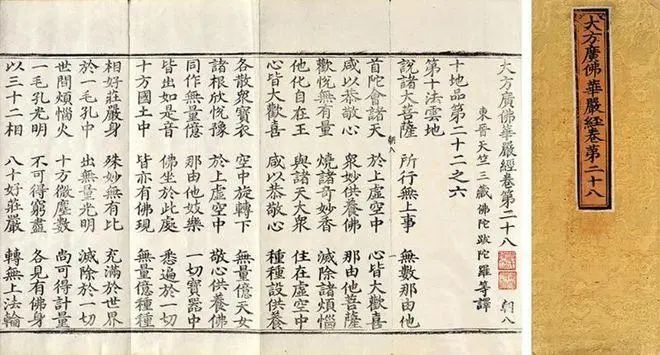 大方廣佛華嚴經卷第二十八
大方廣佛華嚴經卷第二十八 朝八
東晉天竺三藏佛陀跋陀羅等譯
十地品第二十二之六
第十法雲地
說諸大菩薩 所行無上事 無數那由他
首陀會諸天 於上虛空中 心皆大歡喜
咸以恭敬心 衆妙供養佛 那由他菩薩
歡悅無有量 燒諸奇妙香 滅除諸煩惱
他化自在王 與諸天大衆 住在虛空中
心皆大歡喜 咸以恭敬心 種種設供養
各散衆寶衣 空中旋轉下 無量億天女
諸根欣悅豫 於上虛空中 敬心供養佛
同作無量億 那由他妓樂 一切寶器中
皆出如是音 佛坐於此處 悉遍於一切
十方國土中 皆亦有佛現 無量億種種
相好莊嚴身 殊妙無有比 充滿於世界
於一毛孔中 出無量光明 滅除於一切
世間煩惱火 十方微塵數 尚可得計量
一毛孔光明 不可得窮盡 各見有佛身
以三十二相 八十好莊嚴 轉無上法輪